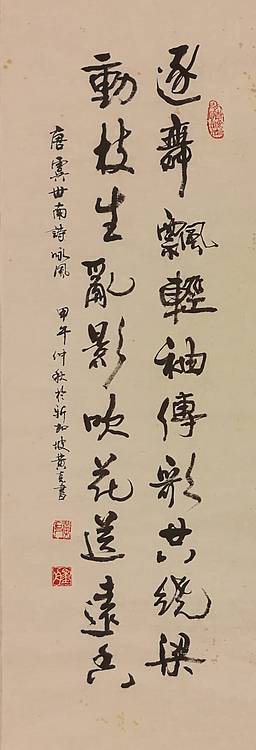 逐舞飄輕袖傳歌共绕梁
動枝生亂影吹花送遠香
唐虞世南詩咏風
甲午仲秋於新加坡黃書